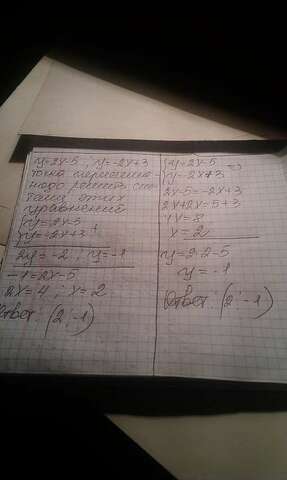 y=2x-5 ; y=-2x+3
точка пересечения
надо решить сис-
тему этих
уравнений
{y=2x-5
{y=-2x+3 +
2y=-2 ; y=-1
-1=2x-5
2x=4 ; x=2
Ответ: (2;-1)
{y=2x-5
{y=-2x+3 =>
2x-5=-2x+3
2x+2x=5+3
4x=8
x=2
y=2·2-5
y=-1
Ответ: (2;-1)